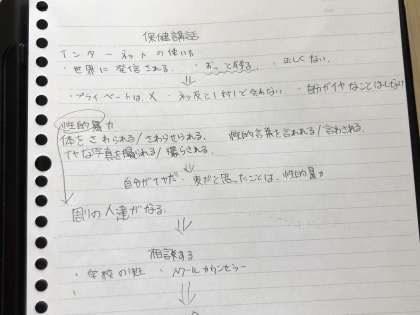 保健講話
インターネットの使い方
・世界に発信される。 ・ずっと残る。 ・正しくない。
・プライベートは、× ・ネッ友と1対1で会わない ・自分がイヤなことはしない
性的暴力
体をさわられる/さわらせられる。 性的言葉を言われる/言わされる。
イヤな写真を撮られる/撮らされる。
自分がイヤだ・変だと思ったことは、性的暴力
周りの人達がなる。
相談する
・学校の先生 ・スクールカウンセラー